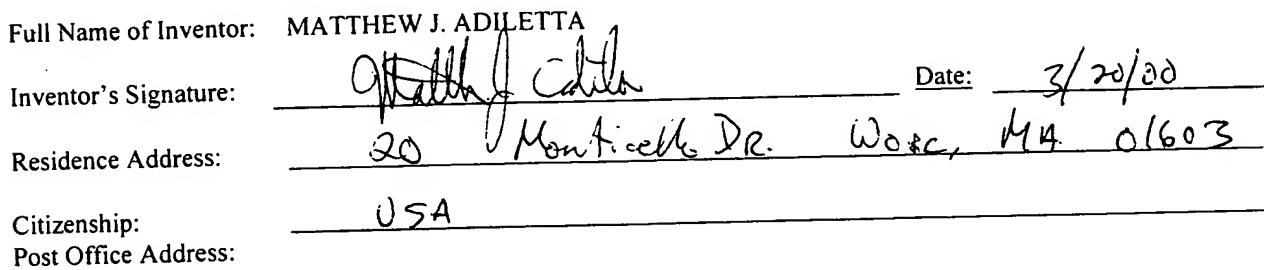 Full Name of Inventor: MATTHEW J. ADILETTA
Inventor's Signature: Date: 3/20/00
Residence Address: 20 Monticello DR. Worc, MA 01603
Citizenship: USA
Post Office Address: